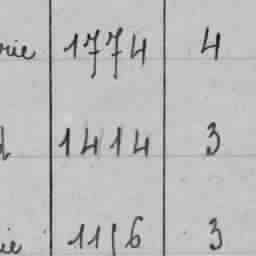 rie 1774 4
1414 3
ie 1156 3